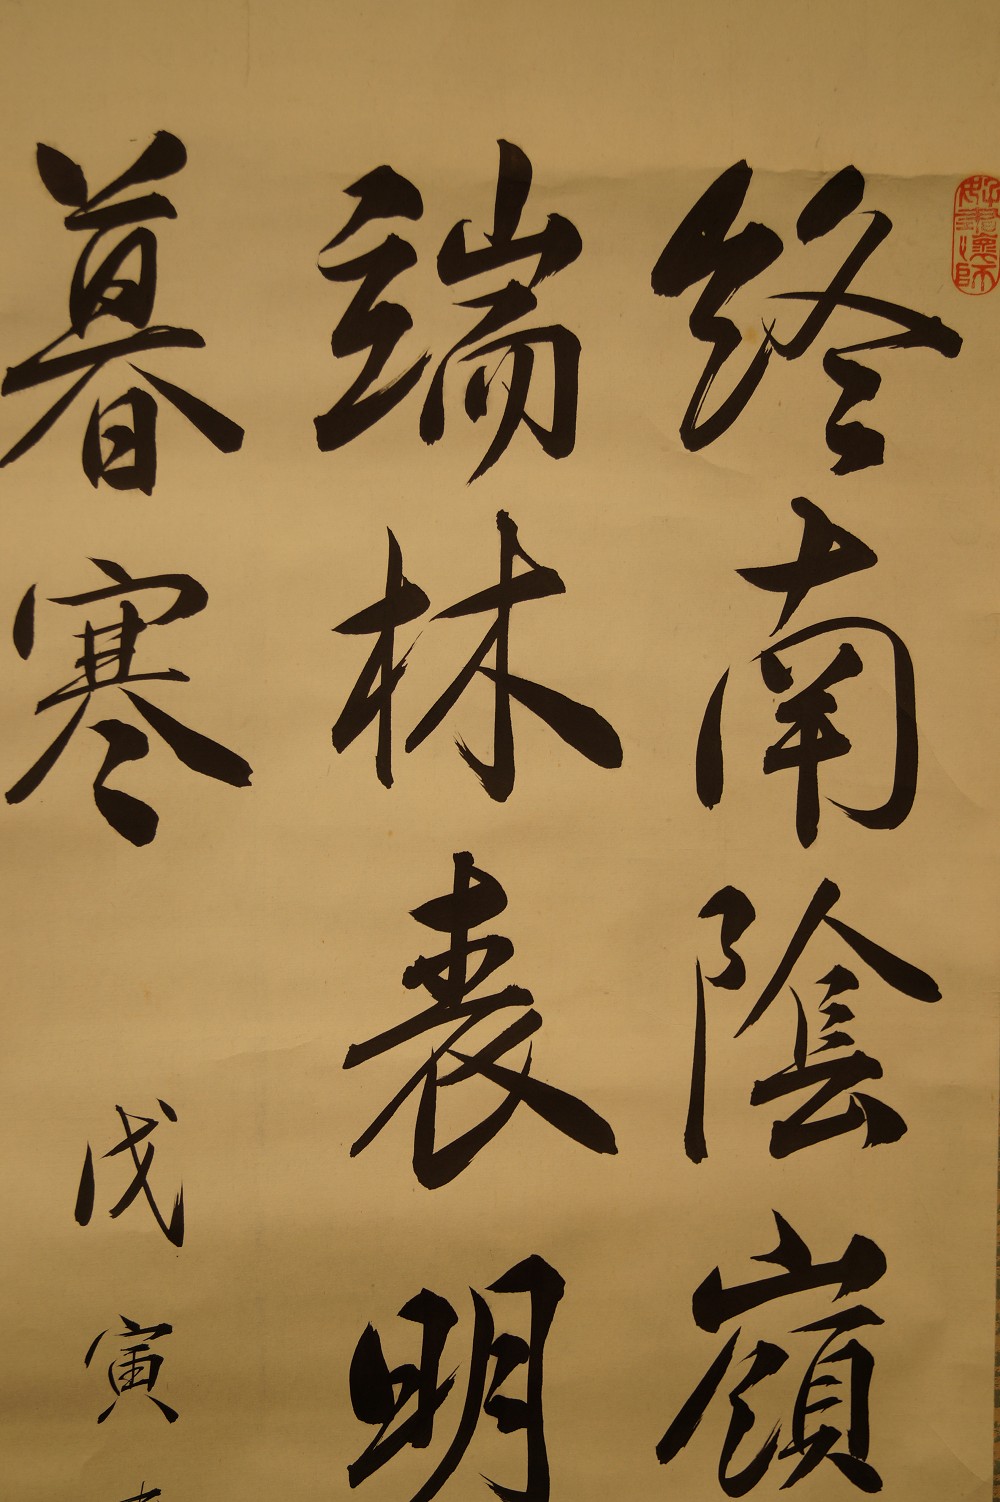 終南陰嶺
端林表明
暮寒
戊寅